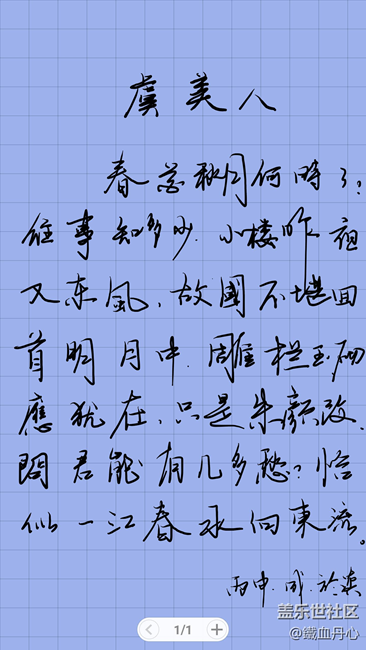 虞美人
春花秋月何時了?
往事知多少.小楼昨夜
又东風,故國不堪回
首明月中.雕栏玉砌
應犹在,只是朱颜改.
問君能有几多愁?恰
似一江春水向東流。
丙申.成.於滇
1/1
盖乐世社区
@鐵血丹心